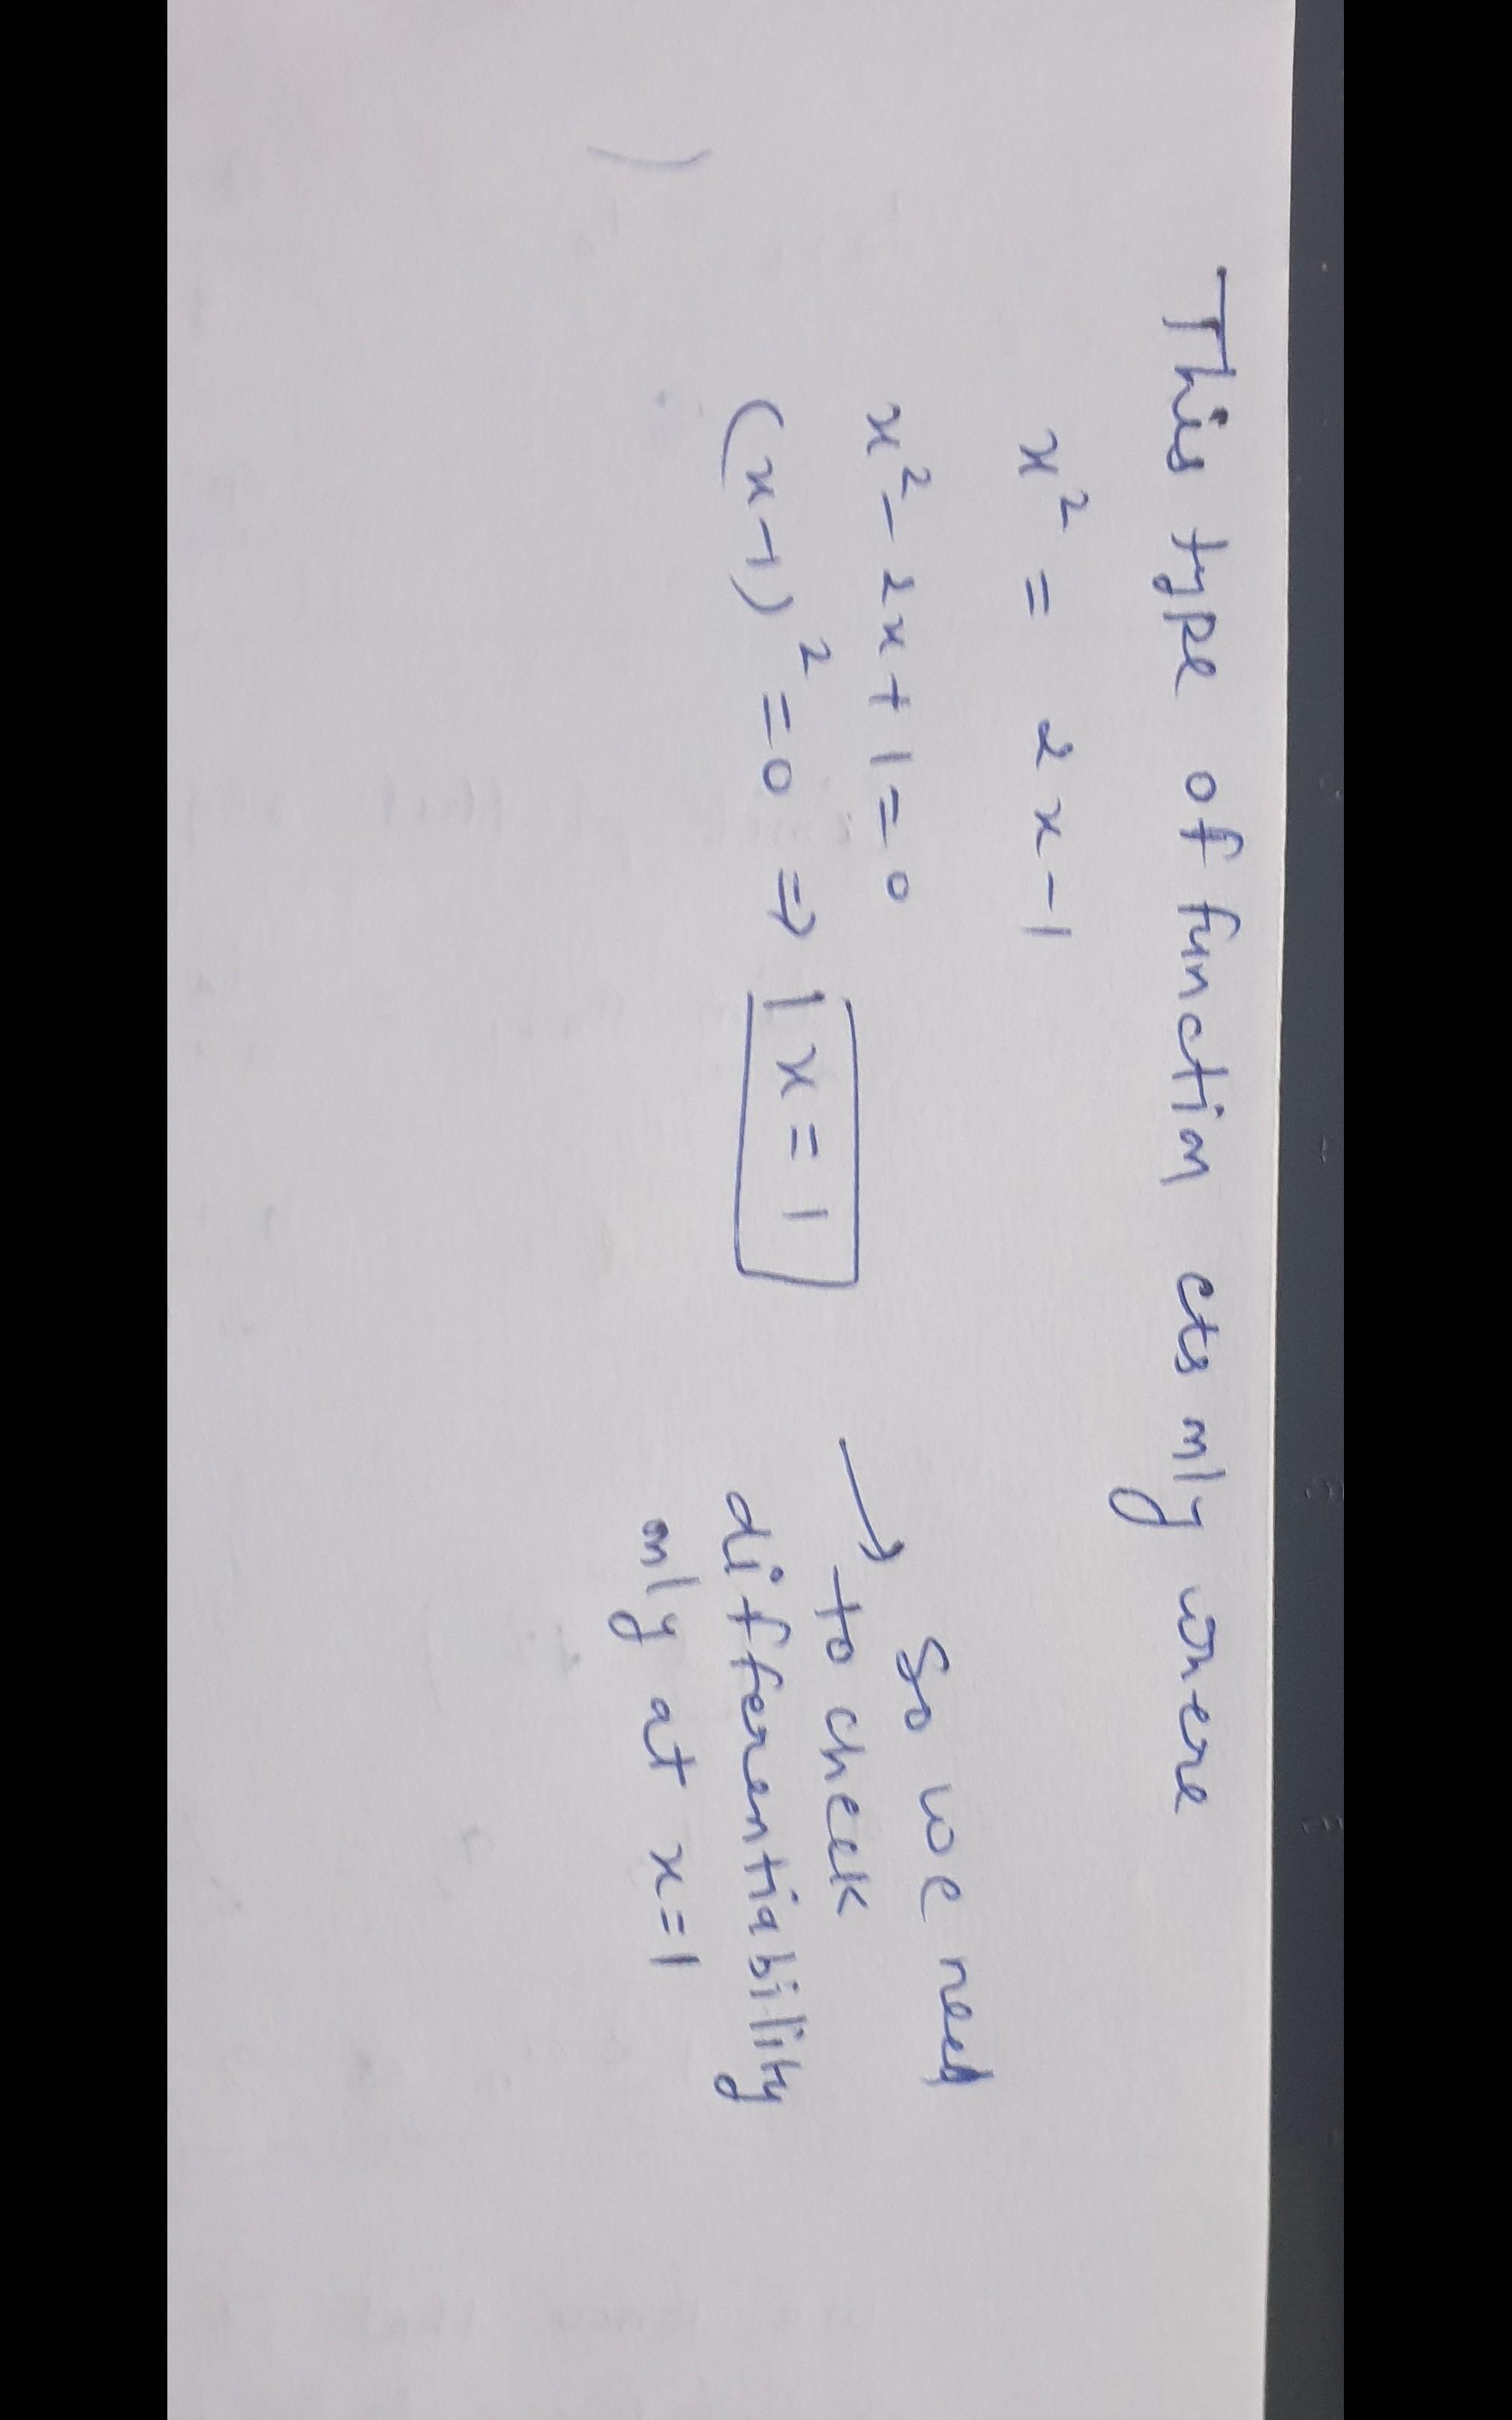 This type of function cts only where
x² = 2x-1
x² - 2x + 1 = 0
(x-1)² = 0 ⇒ x = 1
→ So we need
to check
differentiability
only at x=1